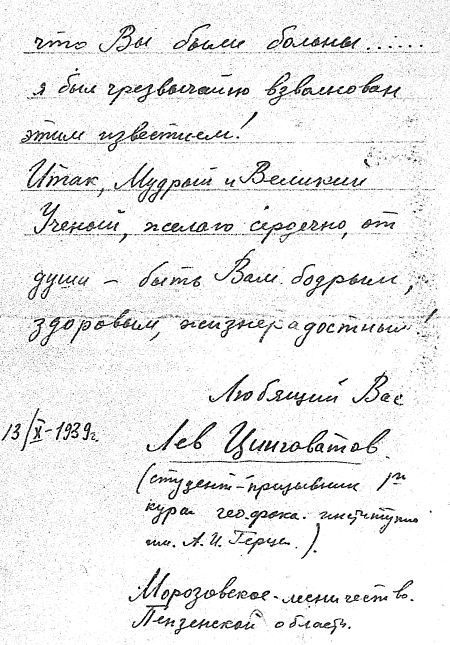 что Вы были больны......
я был чрезвычайно взволнован
этим известием!
Итак, Мудрый и Великий
Ученый, желаю сердечно, от
души – быть Вам бодрым,
здоровым, жизнерадостным!
Любящий Вас
13/X-1939г.
Лев Цинговатов.
(студент-призывник
курса геофака института
им. А. И. Герцена).
Морозовское лесничество.
Пензенской область.